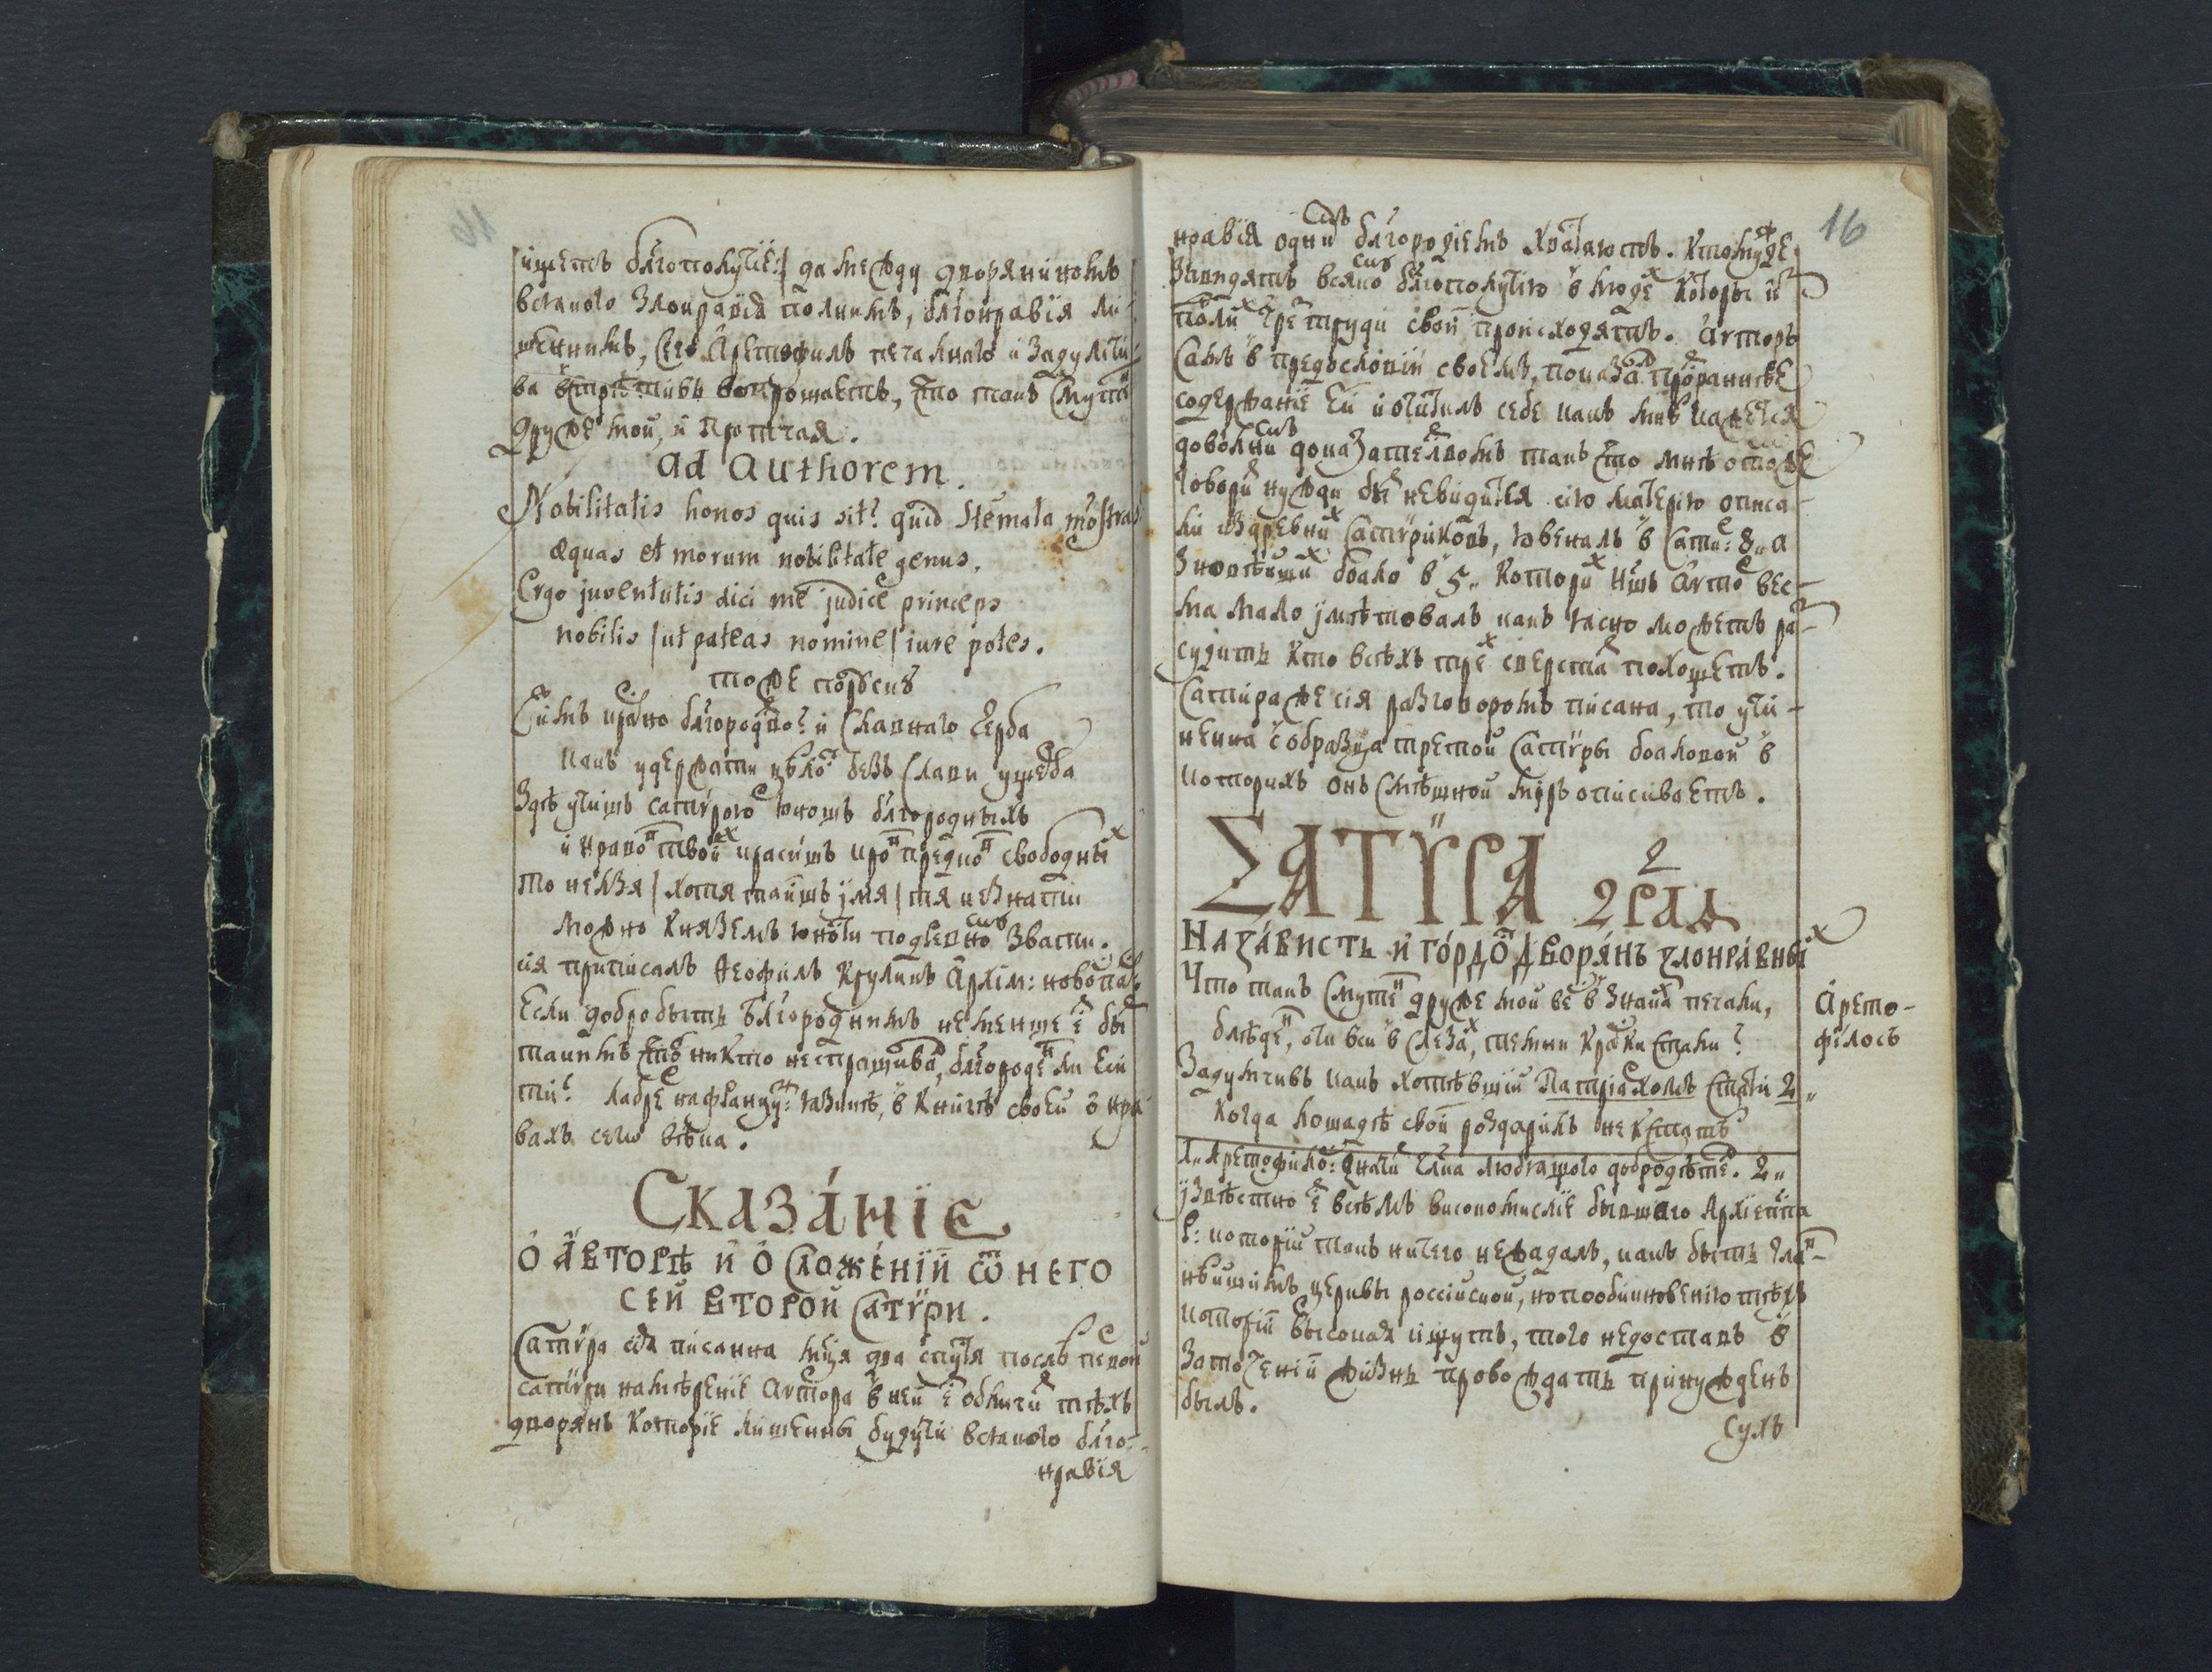 ищетъ блгополучїе:/ да между дворяниномъ
всѧкого злонравїѧ полнимъ, блгонравїя ли-
шеннимъ, сего Аретофилъ печалнаго и задумчи-
ва встрѣтивъ вопрошаетъ, что такъ смутн
друже мой, и протчая.
Ad Authorem.
Nobilitatis honos quis sit? quid stemata mostras
æquas et morum nobilitate genus.
Ergo juventutis dici me judice princeps
nobilis /ut pateas nomine/ iure potes.
тоже порускъ
Симъ красно блгородво? и славнаго герба
какъ удержати цѣло без славы ущерба
Здѣ учишъ сатирою юношъ блгородныхъ
и нравов твоих красишъ кров предков свободных
то нелзя /хотя таишъ имя/ тя незнати
можно княземъ юности подлеиско звати.
сія приписалъ Ѳеофилъ Кроликъ Архім: новоспас
Если добро быть блгороднимъ не менше е бы
такимъ что никто неспрашива, блгороден ли еси
ти? лабре на францу: язикѣ, в книгѣ своей о нра
вахъ сего вѣка.
Сказанїе
О Авторѣ и о сложенїи ѿ него
сей второй сатѵри.
Сатѵра сїѧ писанна мца два спустя послѣ первой
сатѵри намѣренїе автора в ней е обличи тѣхъ
дворянъ которїе лишенны будучи всѧкого блго-
нравїя
16
нравїя одним блгородїемъ хвастаютъ. к тому же
завидятъ всяко благополучїю в люде которы из
подли чрез труди свои происходятъ. Авторъ
самъ в предословїи своемъ, показа пространнѣе
содержанїе ей и очистилъ себе какъ мнѣ кажется
доволни доказателвомъ такъ что мнѣ о томъ
говори нужди бы невидится сїю матерїю описа-
ли из древних сатѵриковъ, ювеналъ в сати: 8 и а
з новѣйши боало в 5. которих ншъ Авто вес-
ма мало імѣтовалъ какъ ясно можетъ ра-
судить кто всѣхъ трех сверста похощетъ.
Сатира же сія разговоромъ писана, то учи-
нена с образца третой сатѵры боаловой в
которихъ онъ смѣшной миръ описиваетъ.
ΣАТѴРА 2
2рая
На завистъ и гордо дворянъ злонравных
Что такъ смутен друже мой ве в знаи печали,
Арето-
филосъ
блѣде, очи вси в слеза, темни краски стали?
Задумчивъ какъ хотѣвшїй Патріахомъ стати 2
когда лошадѣ свои роздарилъ некстатъ
1. Аретофило: значи члка любящого добродѣтел. 2.
ізвѣстно е всѣмъ високомислїе бывшаго Архіеппа
Г: которїи такъ ничего нежадалъ, какъ быть глав-
нѣйшимъ церкви россійской, но пообикновенїю тѣхъ
которїи высокая ищутъ, того недоставъ в
заточенїи жизнь провождать принужденъ
былъ.
сухъ